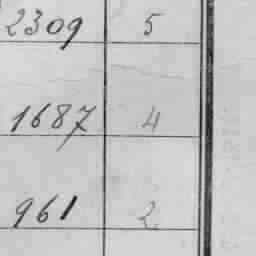 2309 5
1687 4
961 2